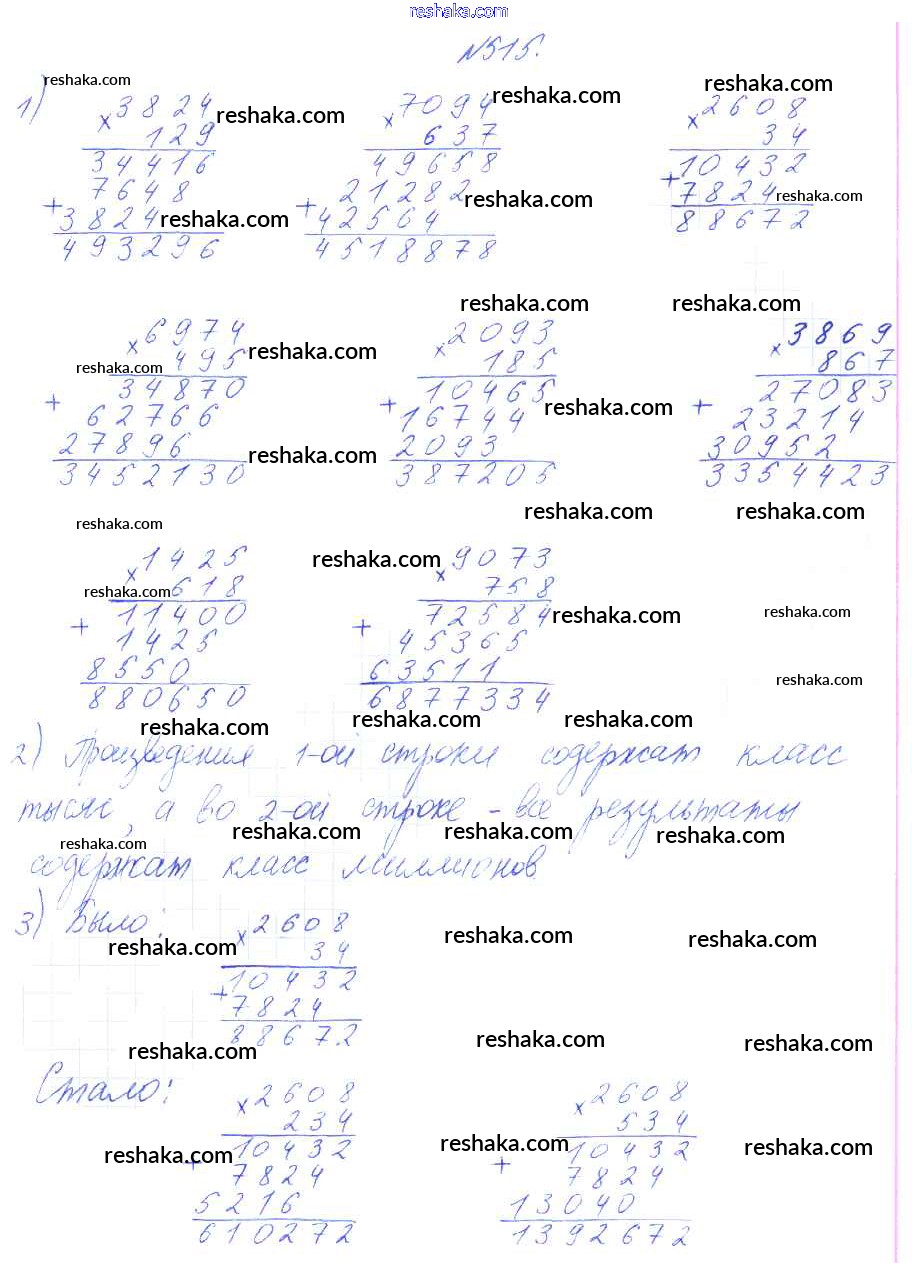 reshaka.com
№515.
reshaka.com
1)
× 3824
129
34416
+ 7648
3824
493296
reshaka.com
reshaka.com
× 7094
637
49658
+ 21282
42564
4518878
reshaka.com
reshaka.com
reshaka.com
× 2608
34
10432
+ 7824
88672
reshaka.com
reshaka.com
reshaka.com
× 6974
495
34870
+ 62766
27896
3452130
reshaka.com
reshaka.com
reshaka.com
× 2093
185
10465
+ 16744
2093
387205
reshaka.com
× 3869
867
27083
+ 23214
30952
3354423
reshaka.com
reshaka.com
reshaka.com
× 1425
618
11400
+ 1425
8550
880650
reshaka.com
reshaka.com
× 9073
758
72584
+ 45365
63511
6877334
reshaka.com
reshaka.com
reshaka.com
reshaka.com
reshaka.com
reshaka.com
2) Произведения 1-ой строки содержат класс
тысяч, а во 2-ой строке - все результаты
reshaka.com
reshaka.com
reshaka.com
reshaka.com
содержат класс миллионов
3) Было:
× 2608
34
10432
+ 7824
88672
reshaka.com
reshaka.com
reshaka.com
reshaka.com
reshaka.com
reshaka.com
Стало:
× 2608
234
10432
+ 7824
5216
610272
reshaka.com
× 2608
534
10432
+ 7824
13040
1392672
reshaka.com
reshaka.com